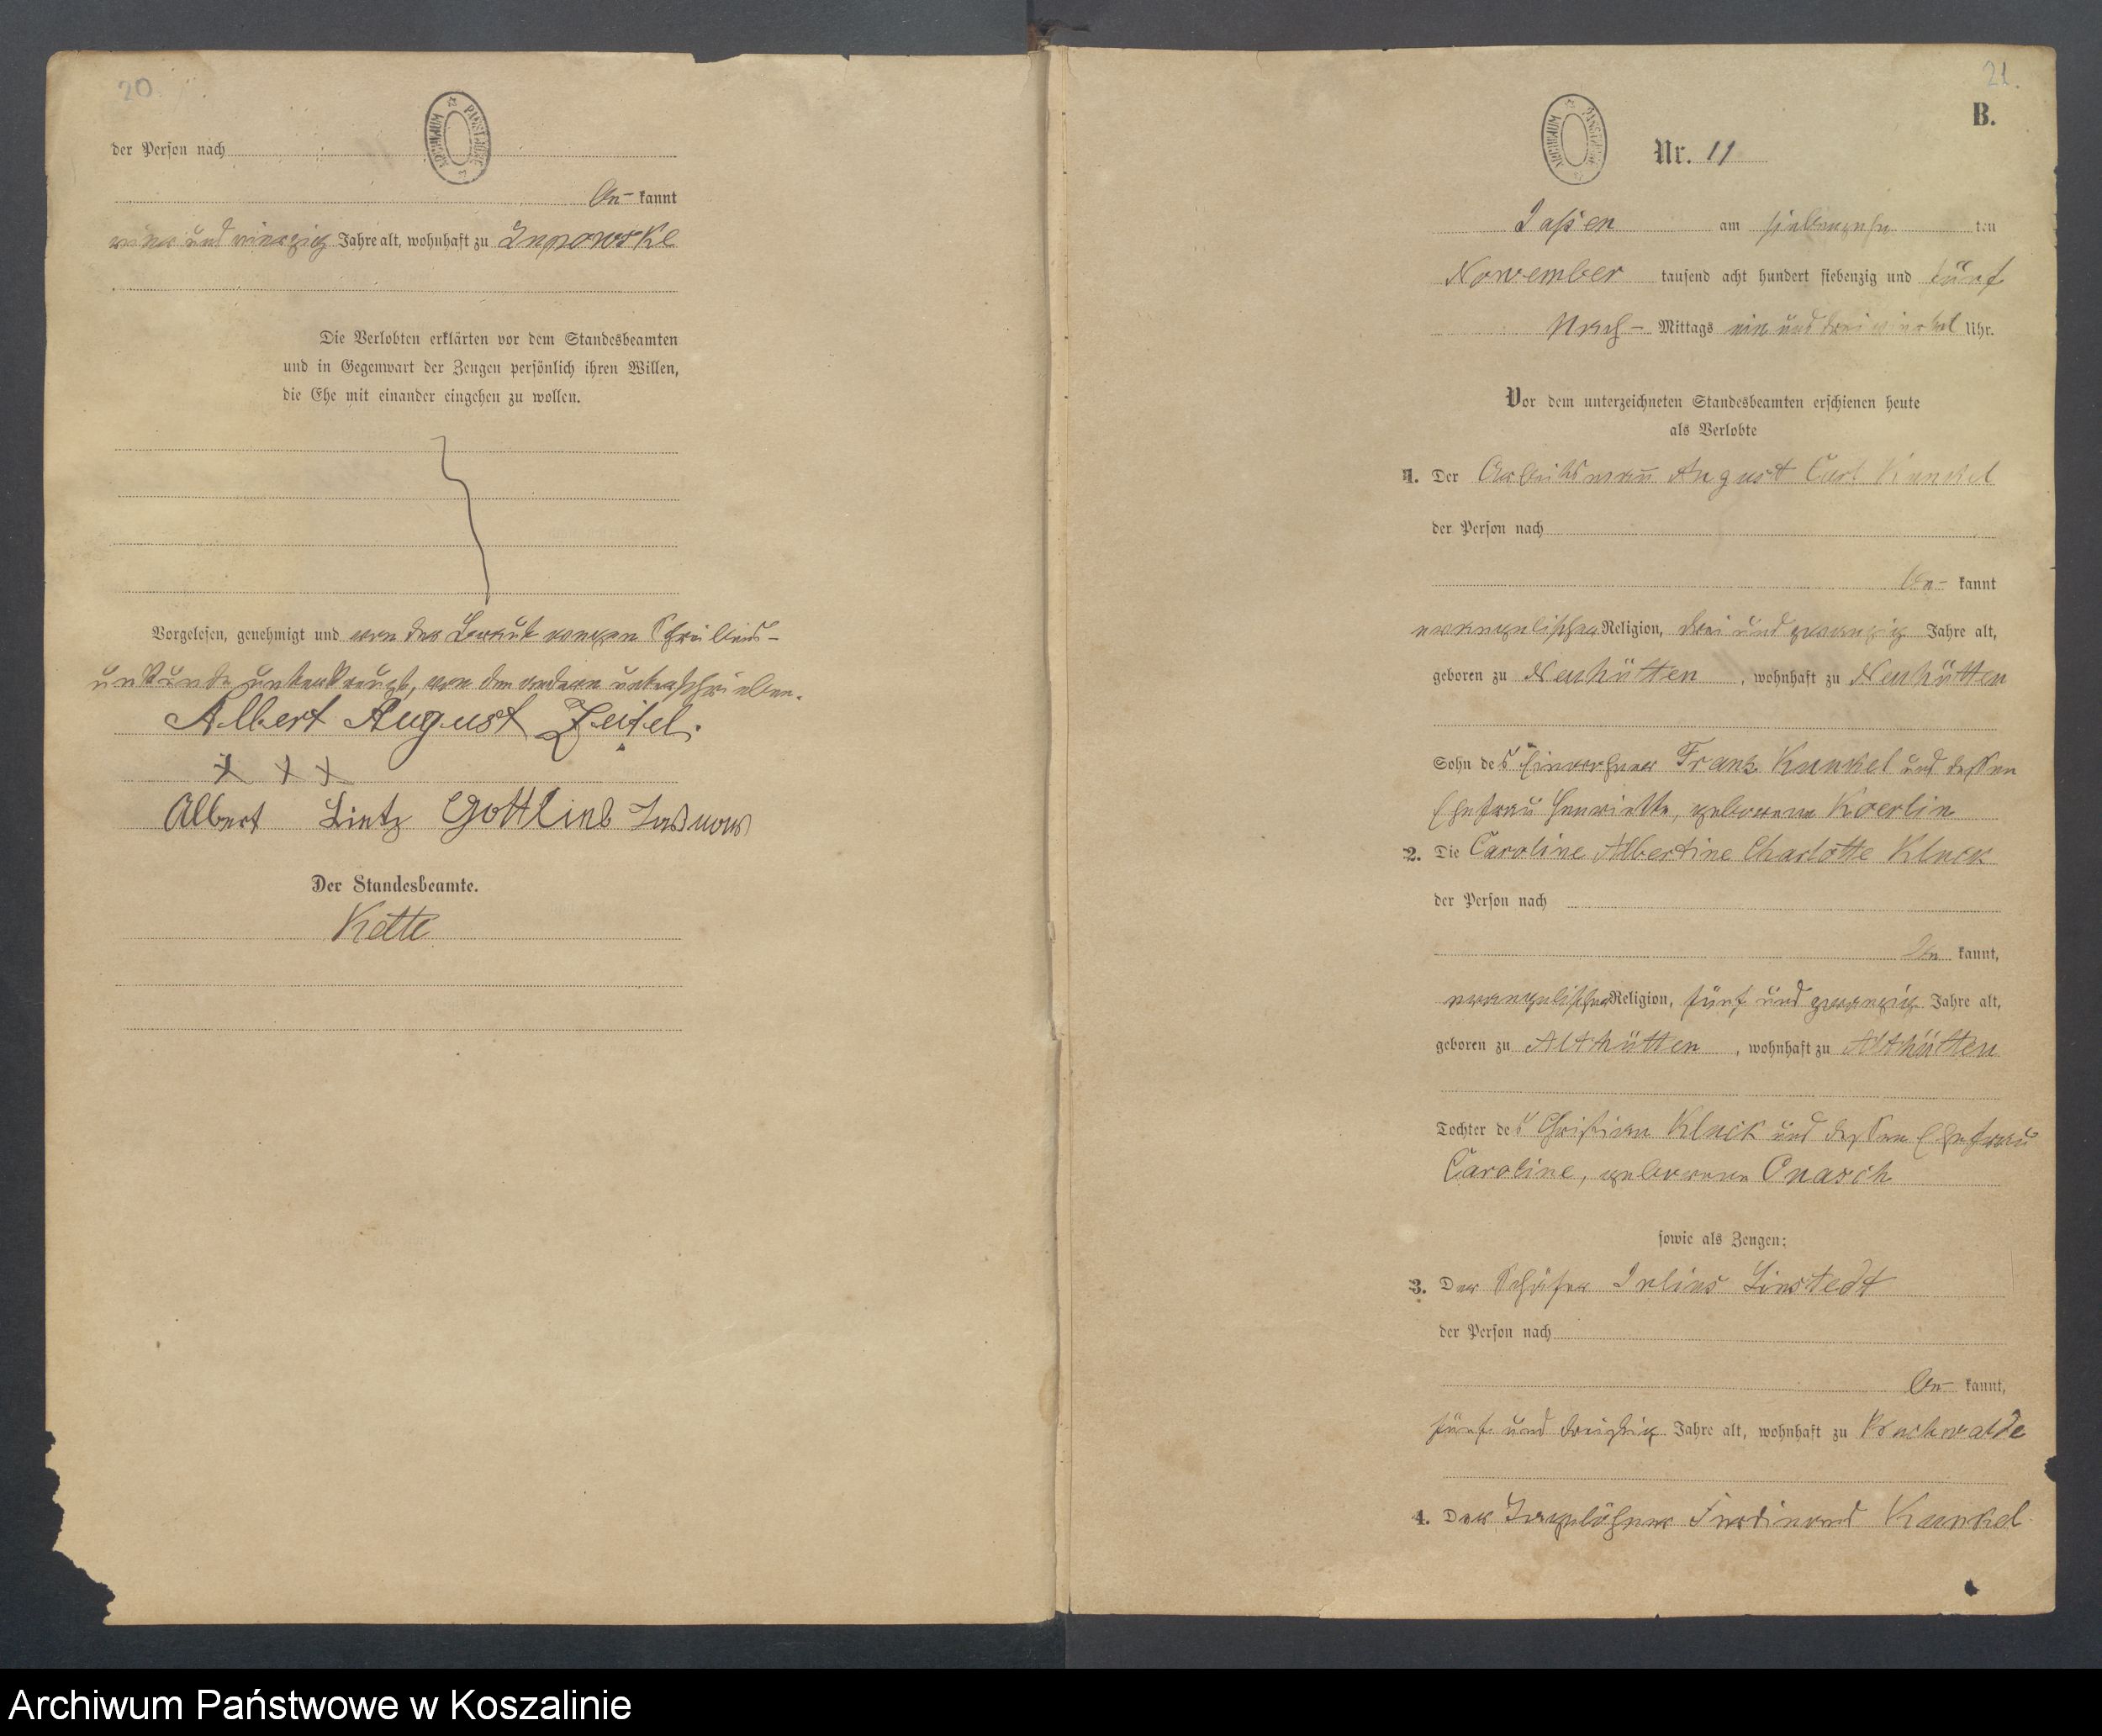 20
ARCHIWUM PAŃSTWOWE
der Person nach
be- kannt
und vierzig Jahre alt, wohnhaft zu
Die Verlobten erklärten vor dem Standesbeamten
und in Gegenwart der Zeugen persönlich ihren Willen,
die Ehe mit einander eingehen zu wollen.
Vorgelesen, genehmigt und von der Braut wegen Schreibens-
unkunde unterkreuzt, von den andern unterschrieben.
Albert August Zeitel.
+ + +
Albert Lietz Gottlieb
Der Standesbeamte.
Kette
21.
B.
ARCHIWUM PAŃSTWOWE
Nr. 11
Jassen am siebenzehn ten
November tausend acht hundert siebenzig und fünf
Nach- Mittags ein und drei viertel Uhr.
Vor dem unterzeichneten Standesbeamten erschienen heute
als Verlobte
1. Der Arbeitsmann August Carl Kunkel
der Person nach
be- kannt
evangelischer Religion, drei und zwanzig Jahre alt,
geboren zu Neuhütten, wohnhaft zu Neuhütten
Sohn des Einwohner Franz Kunkel und dessen
Ehefrau Henriette, geborene Koerlin
2. Die Caroline Albertine Charlotte Kluck
der Person nach
be kannt,
evangelischer Religion, fünf und zwanzig Jahre alt,
geboren zu Althütten, wohnhaft zu Althütten
Tochter des Christian Kluck und dessen Ehefrau
Caroline, geborene Onasch
sowie als Zeugen:
3. Der Schäfer Julius Linstedt
der Person nach
be- kannt,
fünf und dreißig Jahre alt, wohnhaft zu Buchwalde
4. Der Tagelöhner Ferdinand Kunkel
Archiwum Państwowe w Koszalinie